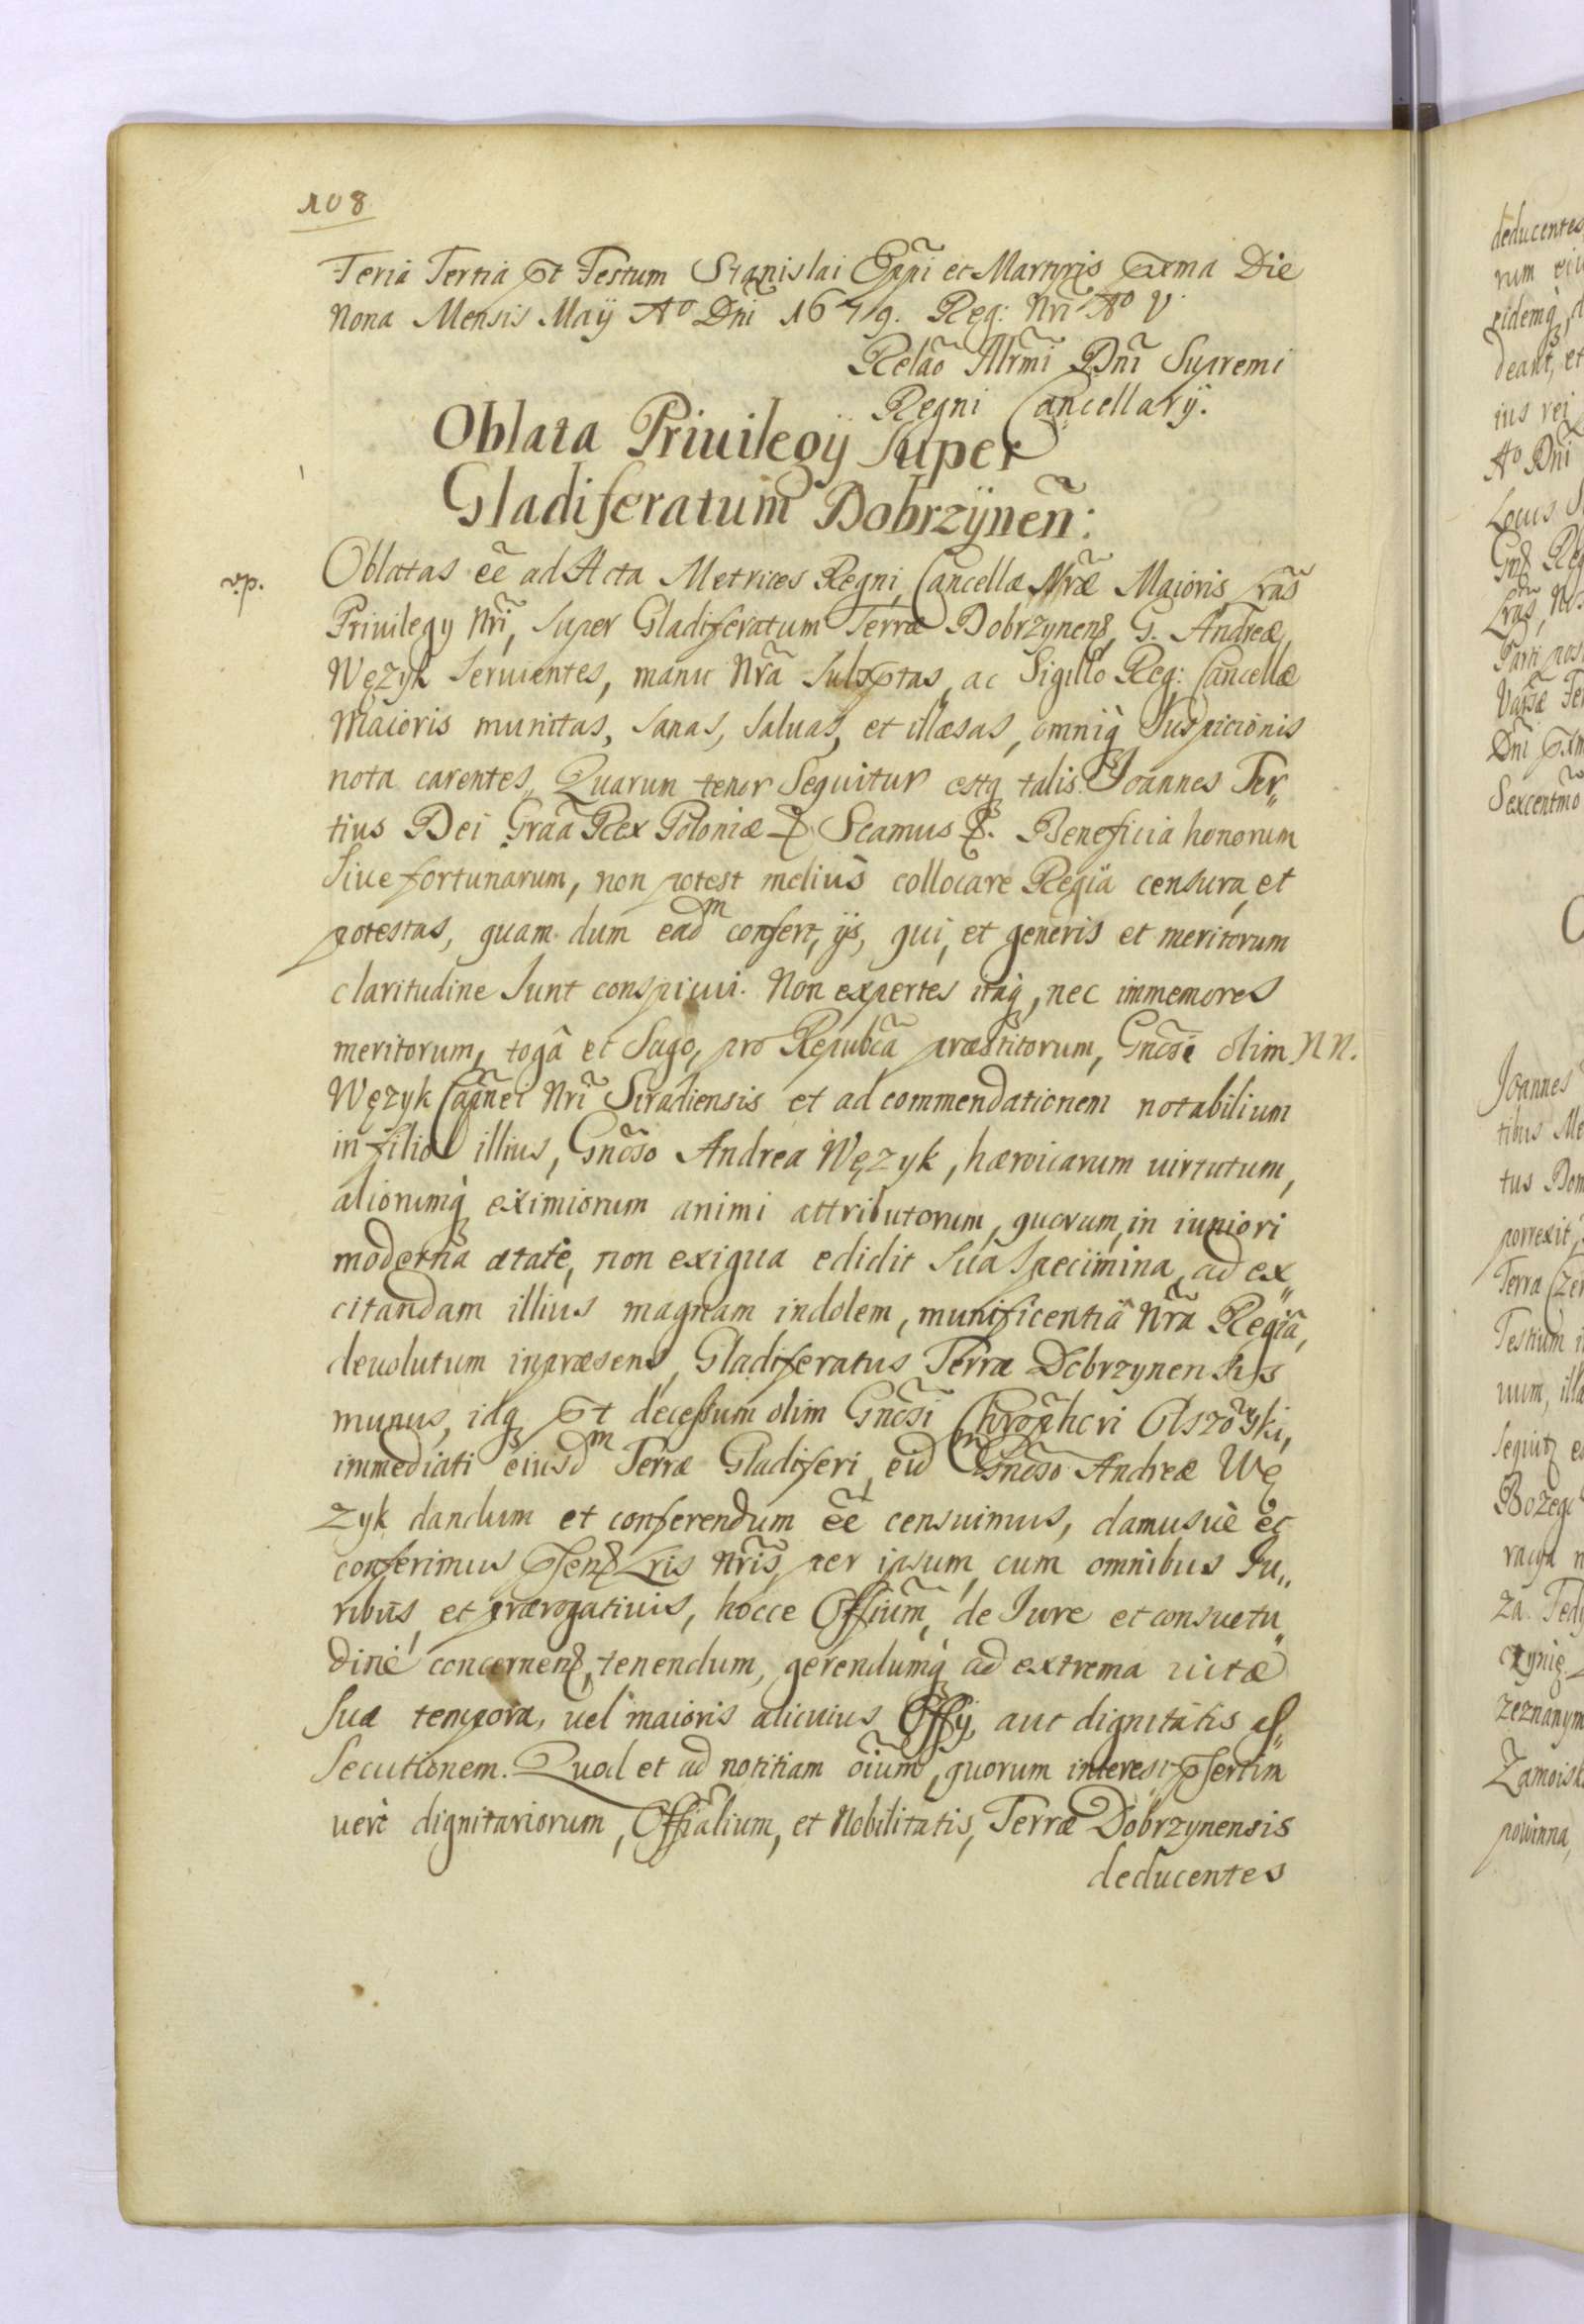 108
Feria Tertia pt Festum Stanislai Eppi et Martyris pxma Die
Nona Mensis Maÿ Aº Dni 1679. Reg: Nri Aº V
Relão Illrmi Dni Supremi
Regni Cancellarÿ.
Oblata Priuilegÿ Super
Gladiferatum Dobrzÿneñ:
vp.
Oblatas eẽ ad Acta Metrices Regni, Cancellæ Nræ Maioris Lras
Priuilegy Nri, super Gladiferatum Terræ Dobrzynens, G. Andreæ
Węzyk seruientes, manu Nra subsptas, ac Sigillo Reg: Cancellæ
Maioris munitas, sanas, saluas, et illæsas, omniq suspicionis
nota carentes, Quarun tenor sequitur estq talis. Joannes Ter„
tius Dei Graã Rex Poloniæ &. Scamus &. Beneficia honorum
siue fortunarum, non potest meliùs collocare Regia censura, et
potestas, quam dum eadm confert, ijs, qui, et generis et meritorum
claritudine sunt conspicui. Non expertes itaq, nec immemores
meritorum, togâ et sago, pro Repubca præstitorum, Gnõsi olim NN.
Węzyk Capnei Nri Siradiensis et ad commendationem notabilium
in filio illius, Gnõso Andrea Węzyk, hæroicarum uirtutum,
aliorumq eximiorum animi attributorum, quorum, in iuniori
moderna ætate, non exigua edidit sua specimina, ad ex„
citandam illius magnam indolem, munificentiâ Nra Regiâ,
deuolutum inpræsens, Gladiferatus Terræ Dobrzynensis
munus, idq pt decessum olim Gnõsi Chrõphori Olszowski,
immediati eiusdm Terræ Gladiferi, eidm Gnõso Andreæ Wę
zyk dandum et conferendum eẽ censuimus, damusuè et
conferimus psens Lris nris, per ipsum, cum omnibus Iu„
ribus, et prærogatiuis, hocce Offium, de Iure et consuetu„
dine concernens, tenendum, gerendumq ad extrema uitæ
suæ tempora, uel maioris alicuius Offÿ, aut dignitatis as„
secutionem. Quod et ad notitiam oium, quorum interest psertim
uerò dignitariorum, Offialium, et Nobilitatis, Terræ Dobrzynensis
deducentes